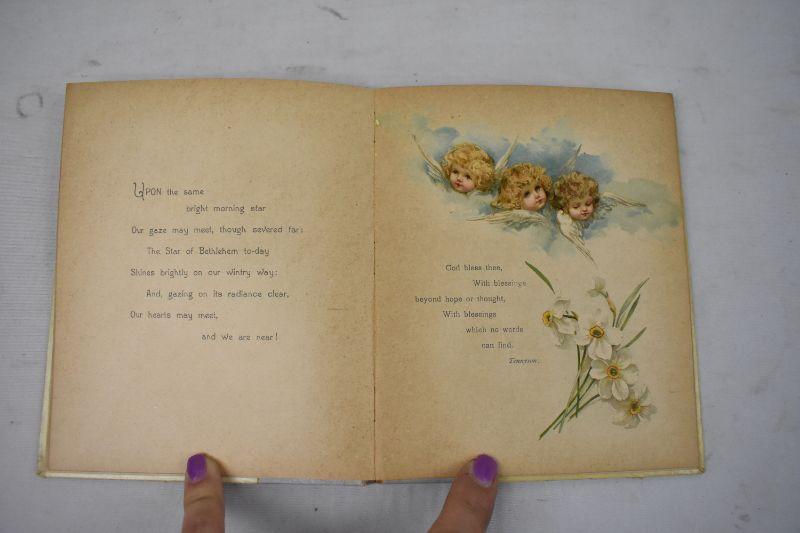 UPON the same
bright morning star
Our gaze may meet, though severed far:
The Star of Bethlehem to-day
Shines brightly on our wintry way:
And, gazing on its radiance clear,
Our hearts may meet,
and we are near!
God bless thee,
With blessings
beyond hope or thought,
With blessings
which no words
can find.
Tennyson.